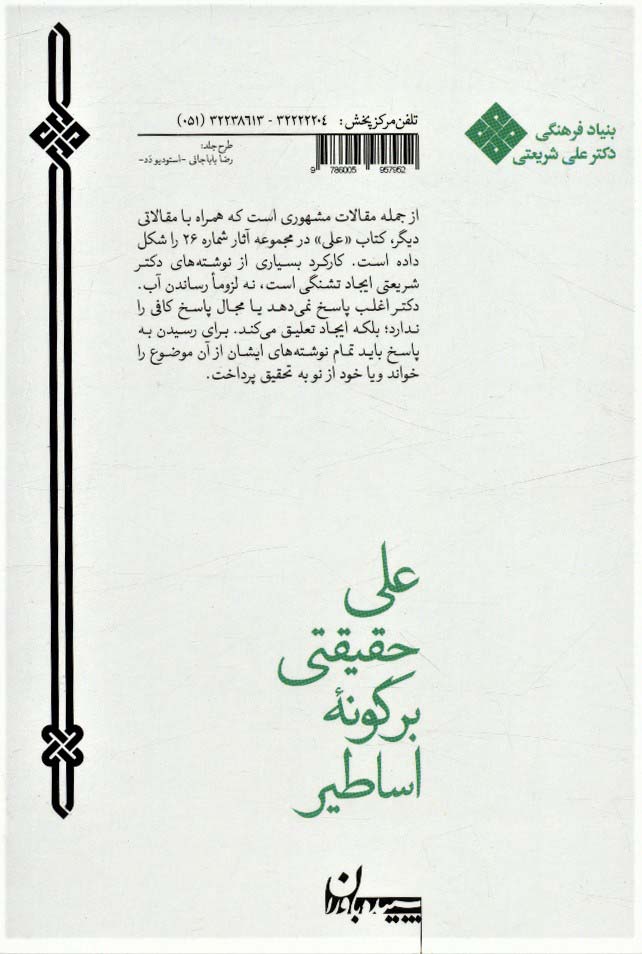 بنیاد فرهنگی
دکتر علی شریعتی
تلفن مرکز پخش: ۳۲۲۲۲۲۰۴ - ۳۲۲۳۸۶۱۳ (۰۵۱)
طرح جلد:
رضا باباجانی -استودیو دَد-
9 786005 957952
از جمله مقالات مشهوری است که همراه با مقالاتی
دیگر، کتاب «علی» در مجموعه آثار شماره ۲۶ را شکل
داده است. کارکرد بسیاری از نوشته‌های دکتر
شریعتی ایجاد تشنگی است، نه لزوماً رساندن آب.
دکتر اغلب پاسخ نمی‌دهد یا مجال پاسخ کافی را
ندارد؛ بلکه ایجاد تعلیق می‌کند. برای رسیدن به
پاسخ باید تمام نوشته‌های ایشان از آن موضوع را
خواند ویا خود از نو به تحقیق پرداخت.
علی
حقیقتی
بر گونهٔ
اساطیر
سپیده باوران